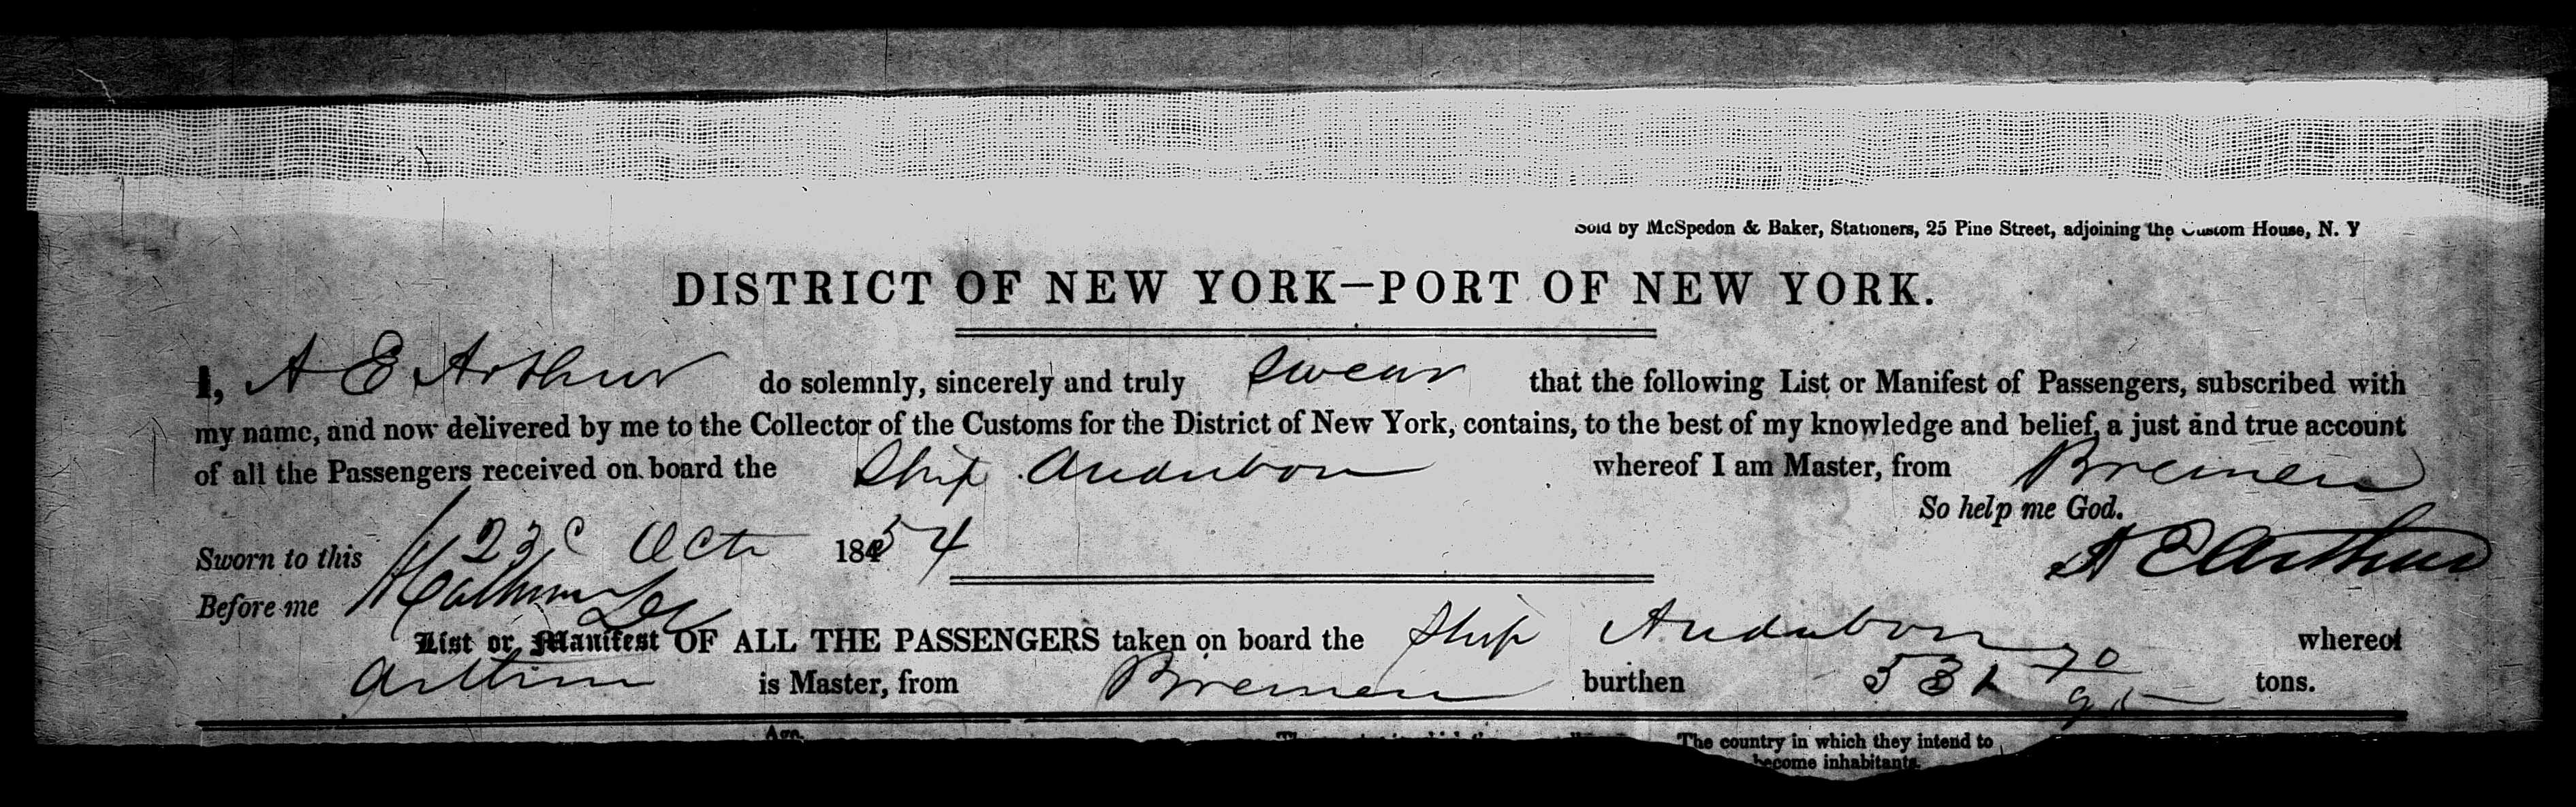 Sold by McSpedon & Baker, Stationers, 25 Pine Street, adjoining the Custom House, N. Y
DISTRICT OF NEW YORK—PORT OF NEW YORK.
I, A E Arthur do solemnly, sincerely and truly Swear that the following List or Manifest of Passengers, subscribed with
my name, and now delivered by me to the Collector of the Customs for the District of New York, contains, to the best of my knowledge and belief, a just and true account
of all the Passengers received on board the Ship Audubon whereof I am Master, from Bremen
So help me God.
Sworn to this 23 Oct 1854
A E Arthur
Before me
List or Manifest OF ALL THE PASSENGERS taken on board the Ship Audubon whereof
Arthur is Master, from Bremen burthen 531 70/95 tons.
Age.
The country in which they intend to
become inhabitants.